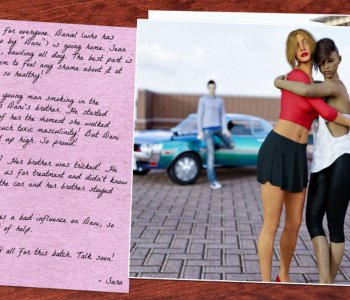 for everyone. Daniel (who has
go by "Dani") is going home. Sean
, bawling all day. The best part is
em to feel any shame about it at
so healthy!
young man smoking in the
s Dani's brother. He started
of her the moment she walked
uch toxic masculinity! But Dani
up high. So proud!
? Her brother was tricked! He
us for treatment and didn't know
the car and her brother stayed
es a bad influence on Dani, so
of help.
all for this batch. Talk soon!
- Sara